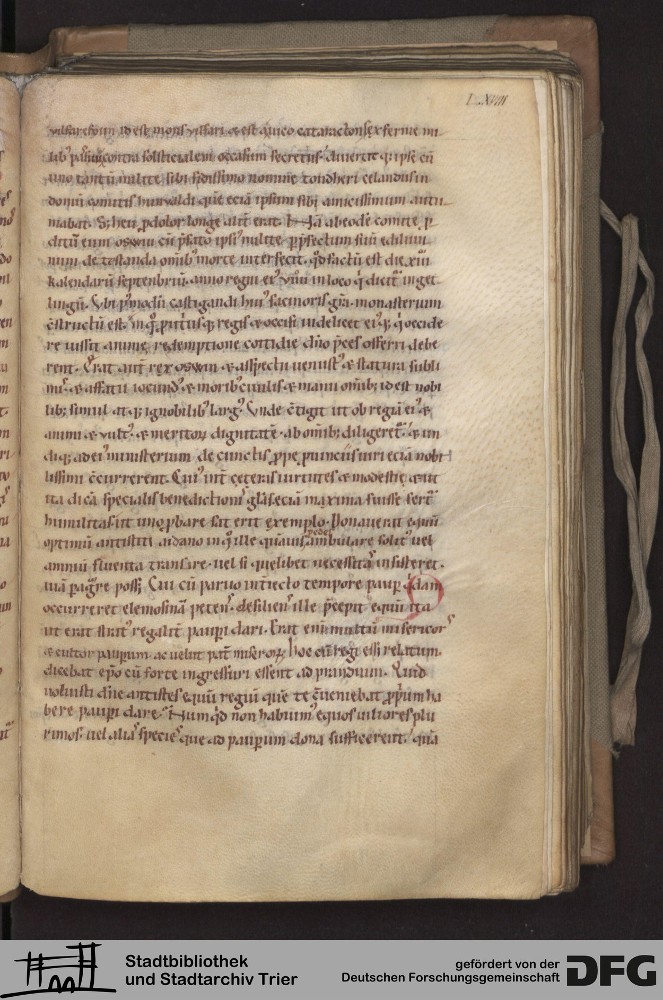 L.XVIII
uilfaresdun id est mons uilfari & est a uico cataractonsex ferme mi
lib; passuū contra solsticialem occasum secretus. diuertit q; ipse cū
uno tantū milite sibi fidissimo nomine tondheri celandus in
domū comitis hunualdi que eciā ipsum sibi amicissimum autu
mabat. S; heu pdolor longe alit erat. Nā ab eodē comite p
ditū eum osuuiu cū p̄fato ipsi militē p p̄fectum suū ediluui
num detestanda omīb; morte interfecit. qd factū est die xiii
kalendarū septembriū. anno regni ei viiii in loco q̇ dicit inget
lingū. Vbi p̱ modū castigandi hui facinoris gr̄a. monasterium
c̄structū est. in q̊ p utriusq; regis & occisi uidelicet ei q; q̇ occide
re iussit anime redemptione cottidie dn̄o p̄ces offerri debe
rent. Erat aut rex osuuin & aspectu uenust & statura subli
mi & affatu iocund & morib; ciuilis & manu omīb; id est nobi
lib; simul atq; ignobilib; larg. Vnde c̄tigit ut ob regiā ei &
animi & uult & meritoꝝ dignitatē ab omīb; diligeret & un
diq; ad ei ministerium de cunctis prope puinciis uiri eciā nobi
lissimi c̄currerent. Cui int ceteras uirtutes & modestie & ut
ita dicā specialis benedictioni gl̄as eciā maxima fuisse fert
humilitas ut uno pbare sat erit exemplo. Donauerat equū
pedes
optimū antistiti aidano in q̊ ille quāuis ambulare solit uel
amniū fluenta transire uel si quelibet necessitas insisteret
uiā pagre posset. Cui cū paruo intiecto tempore paup q̇dam
occurreret elemosinā petens. desiliens ille p̄cepit equū ita
ut erat strat regalit paupi dari. Erat enī multū misericors
& cultor paupum ac uelut pat miseroꝝ. Hoc cū regi esset relatum
dicebat ep̄o cū forte ingressuri essent ad prandium. Quid
uoluisti dn̄e antistes equū regiū quē te c̄ueniebat p̱prium ha
bere paupi dare. Numqd non habuim equos uiliores plu
rimos uel alias species que ad paupum dona sufficerent. quā
Stadtbibliothek
und Stadtarchiv Trier
gefördert von der
Deutschen Forschungsgemeinschaft
DFG